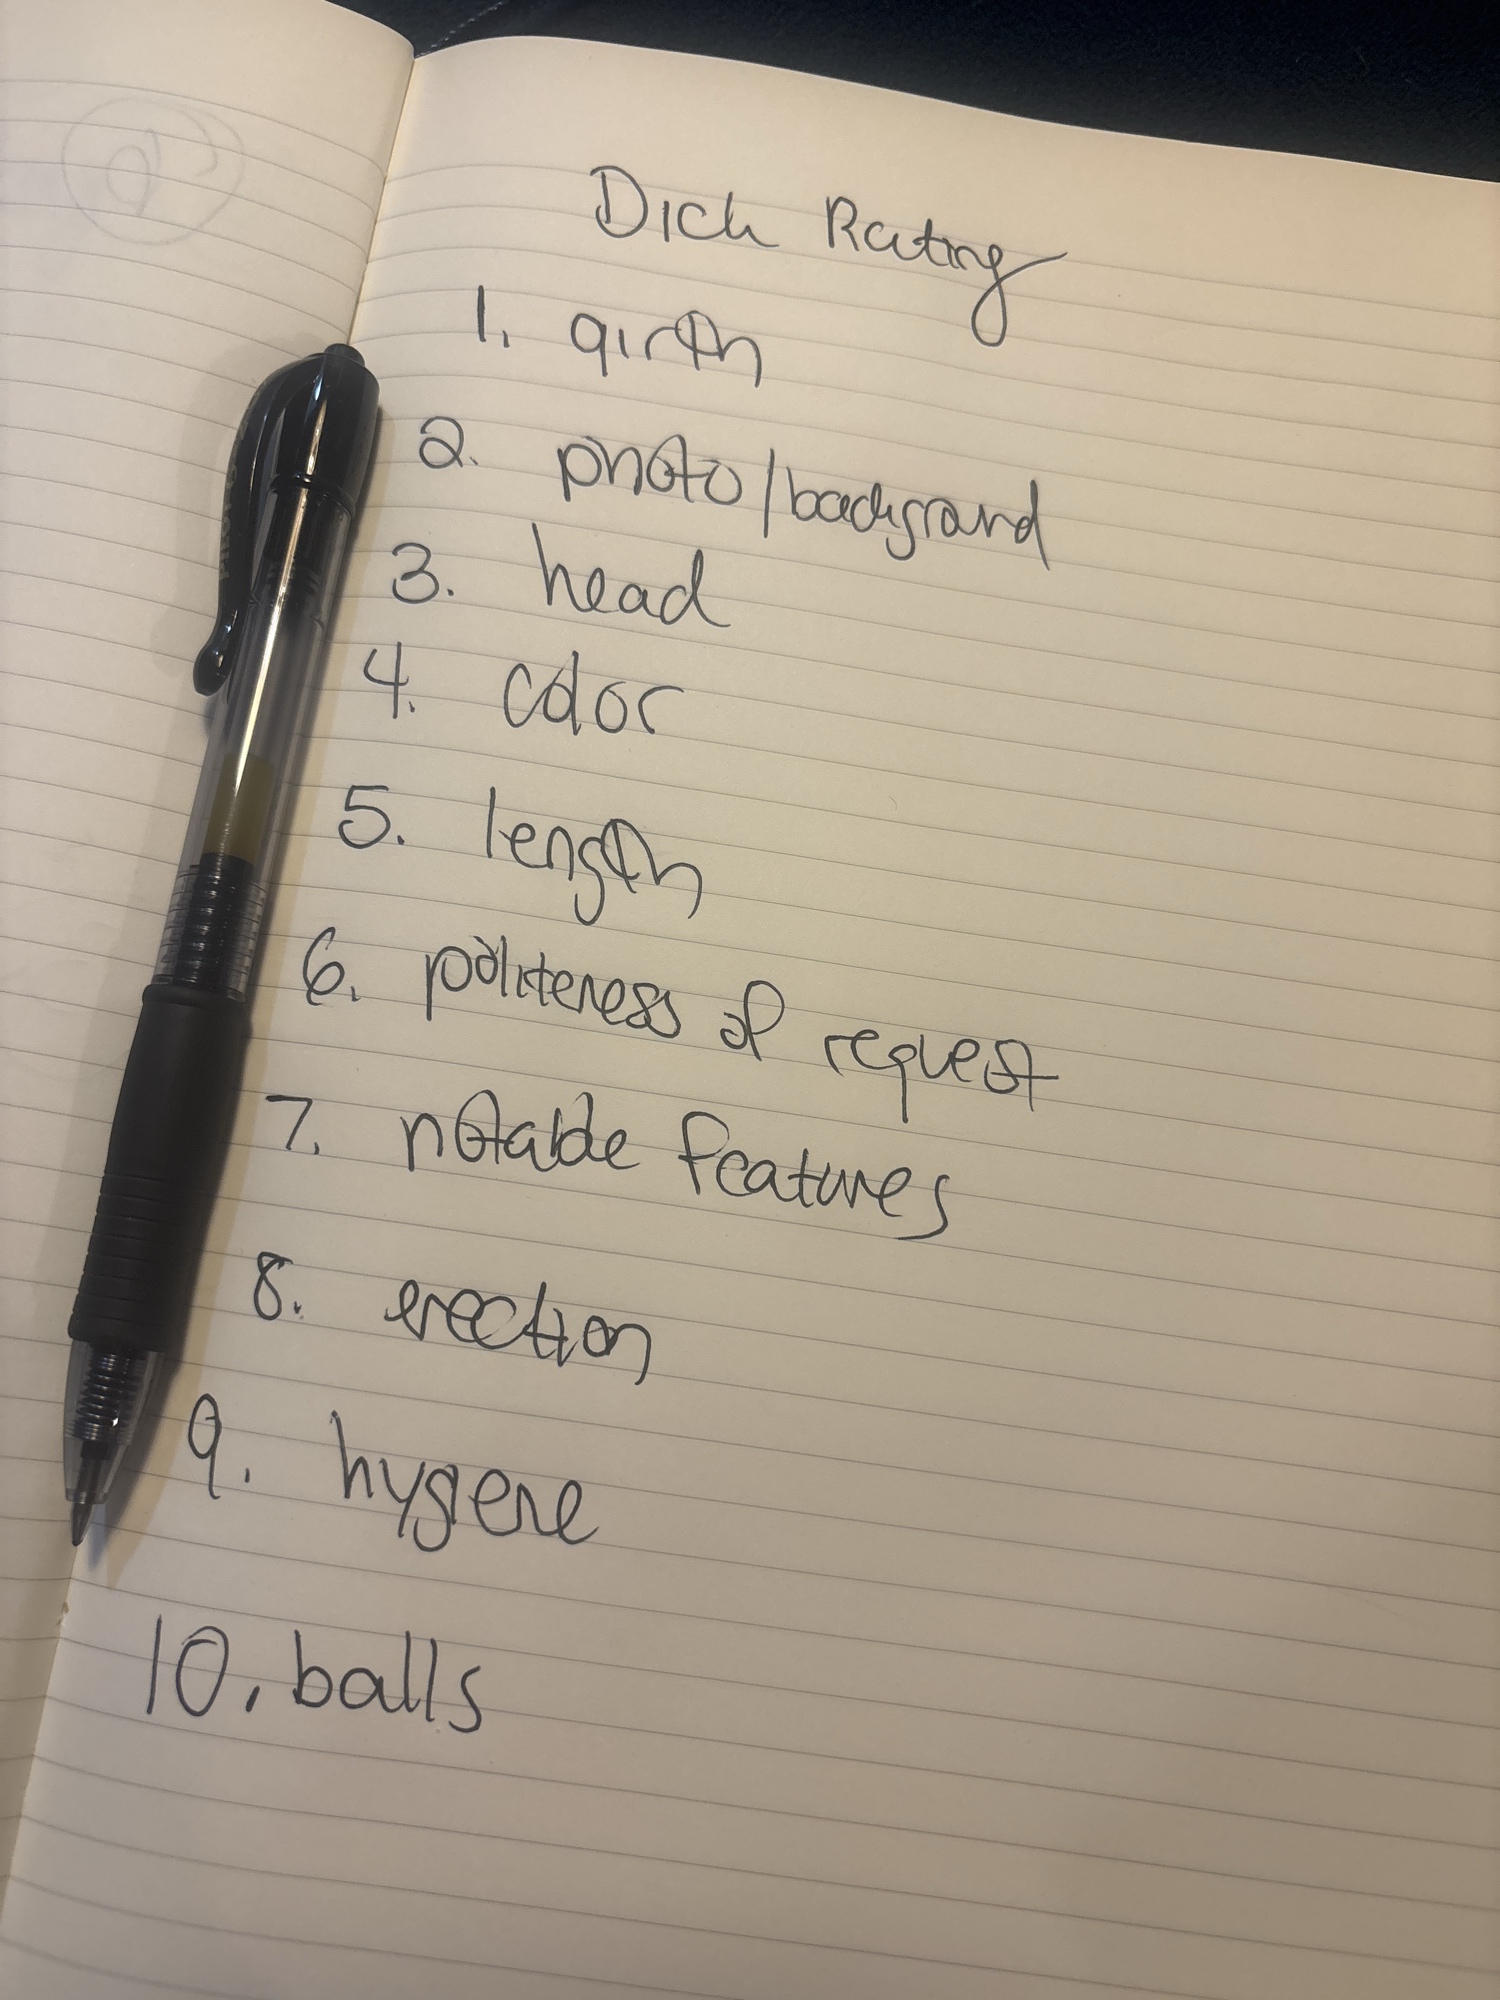 Dick Rating
1. girth
2. photo/background
3. head
4. color
5. length
6. politeness of request
7. notable features
8. erection
9. hygene
10. balls